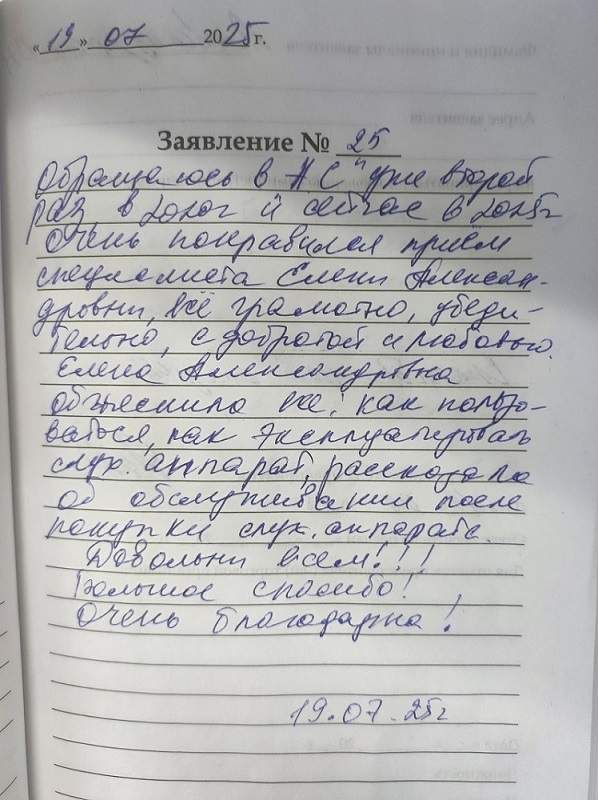 «19» 07 2025 г.
Заявление № 25
Обращаюсь в "АС" уже второй
раз в 2020г и сейчас в 2025г
Очень понравился приём
специалиста Елены Александ-
ровны, всё грамотно, убеди-
тельно, с добротой и любовью.
Елена Александровна
объяснила все: как пользо-
ваться, как эксплуатировать
слух. аппарат, рассказала
об обслуживании после
покупки слух. аппарата.
Довольны всем!!!
Большое спасибо!
Очень благодарна!
19.07.25г